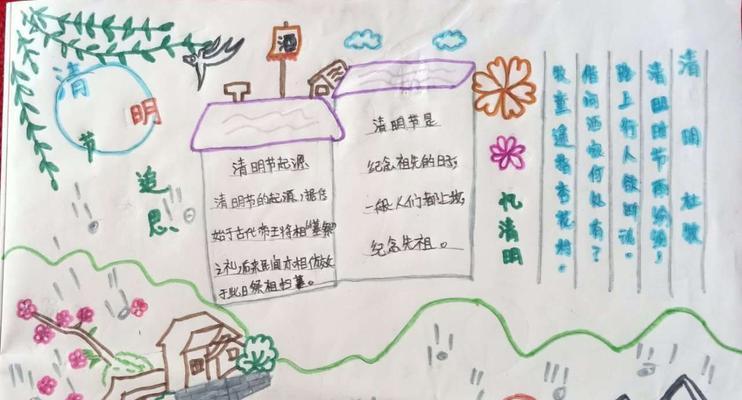 清
明
节
追
思
酒
清明节起源
清明节的起源,据传
始于古代帝王将相“墓祭”
之礼,后来民间亦相仿效
于此日祭祖扫墓。
清明节是
纪念祖先的日子,
一般人们都上坟,
纪念先祖。
忆清明
清明 杜牧
清明时节雨纷纷,
路上行人欲断魂。
借问酒家何处有?
牧童遥指杏花村。